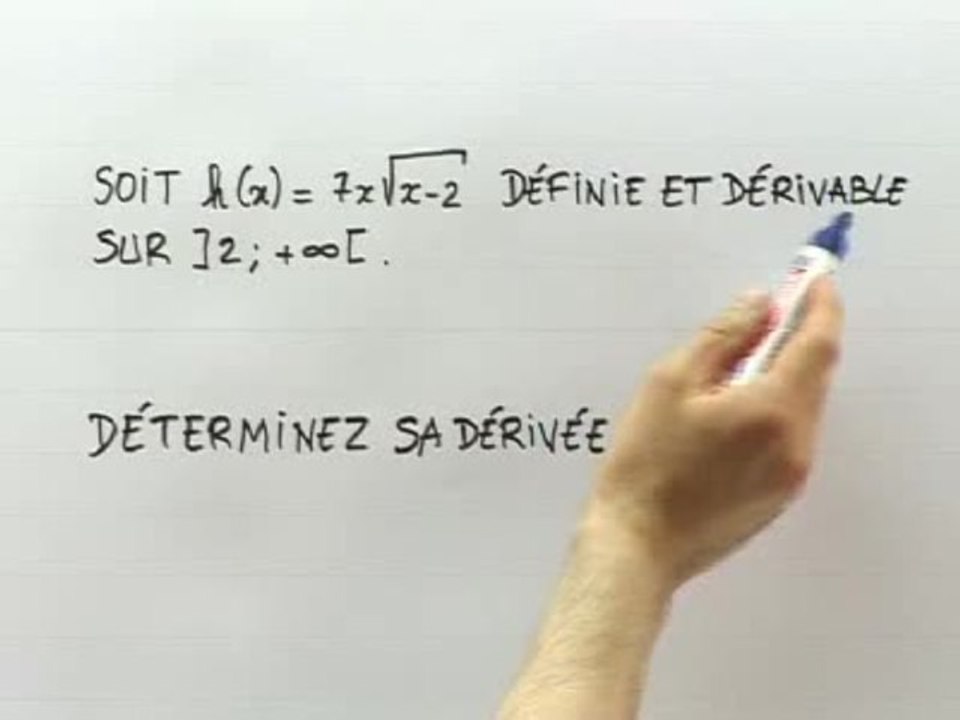 SOIT h(x) = 7x√x-2 DÉFINIE ET DÉRIVABLE
SUR ]2; +∞[.
DÉTERMINEZ SA DÉRIVÉE